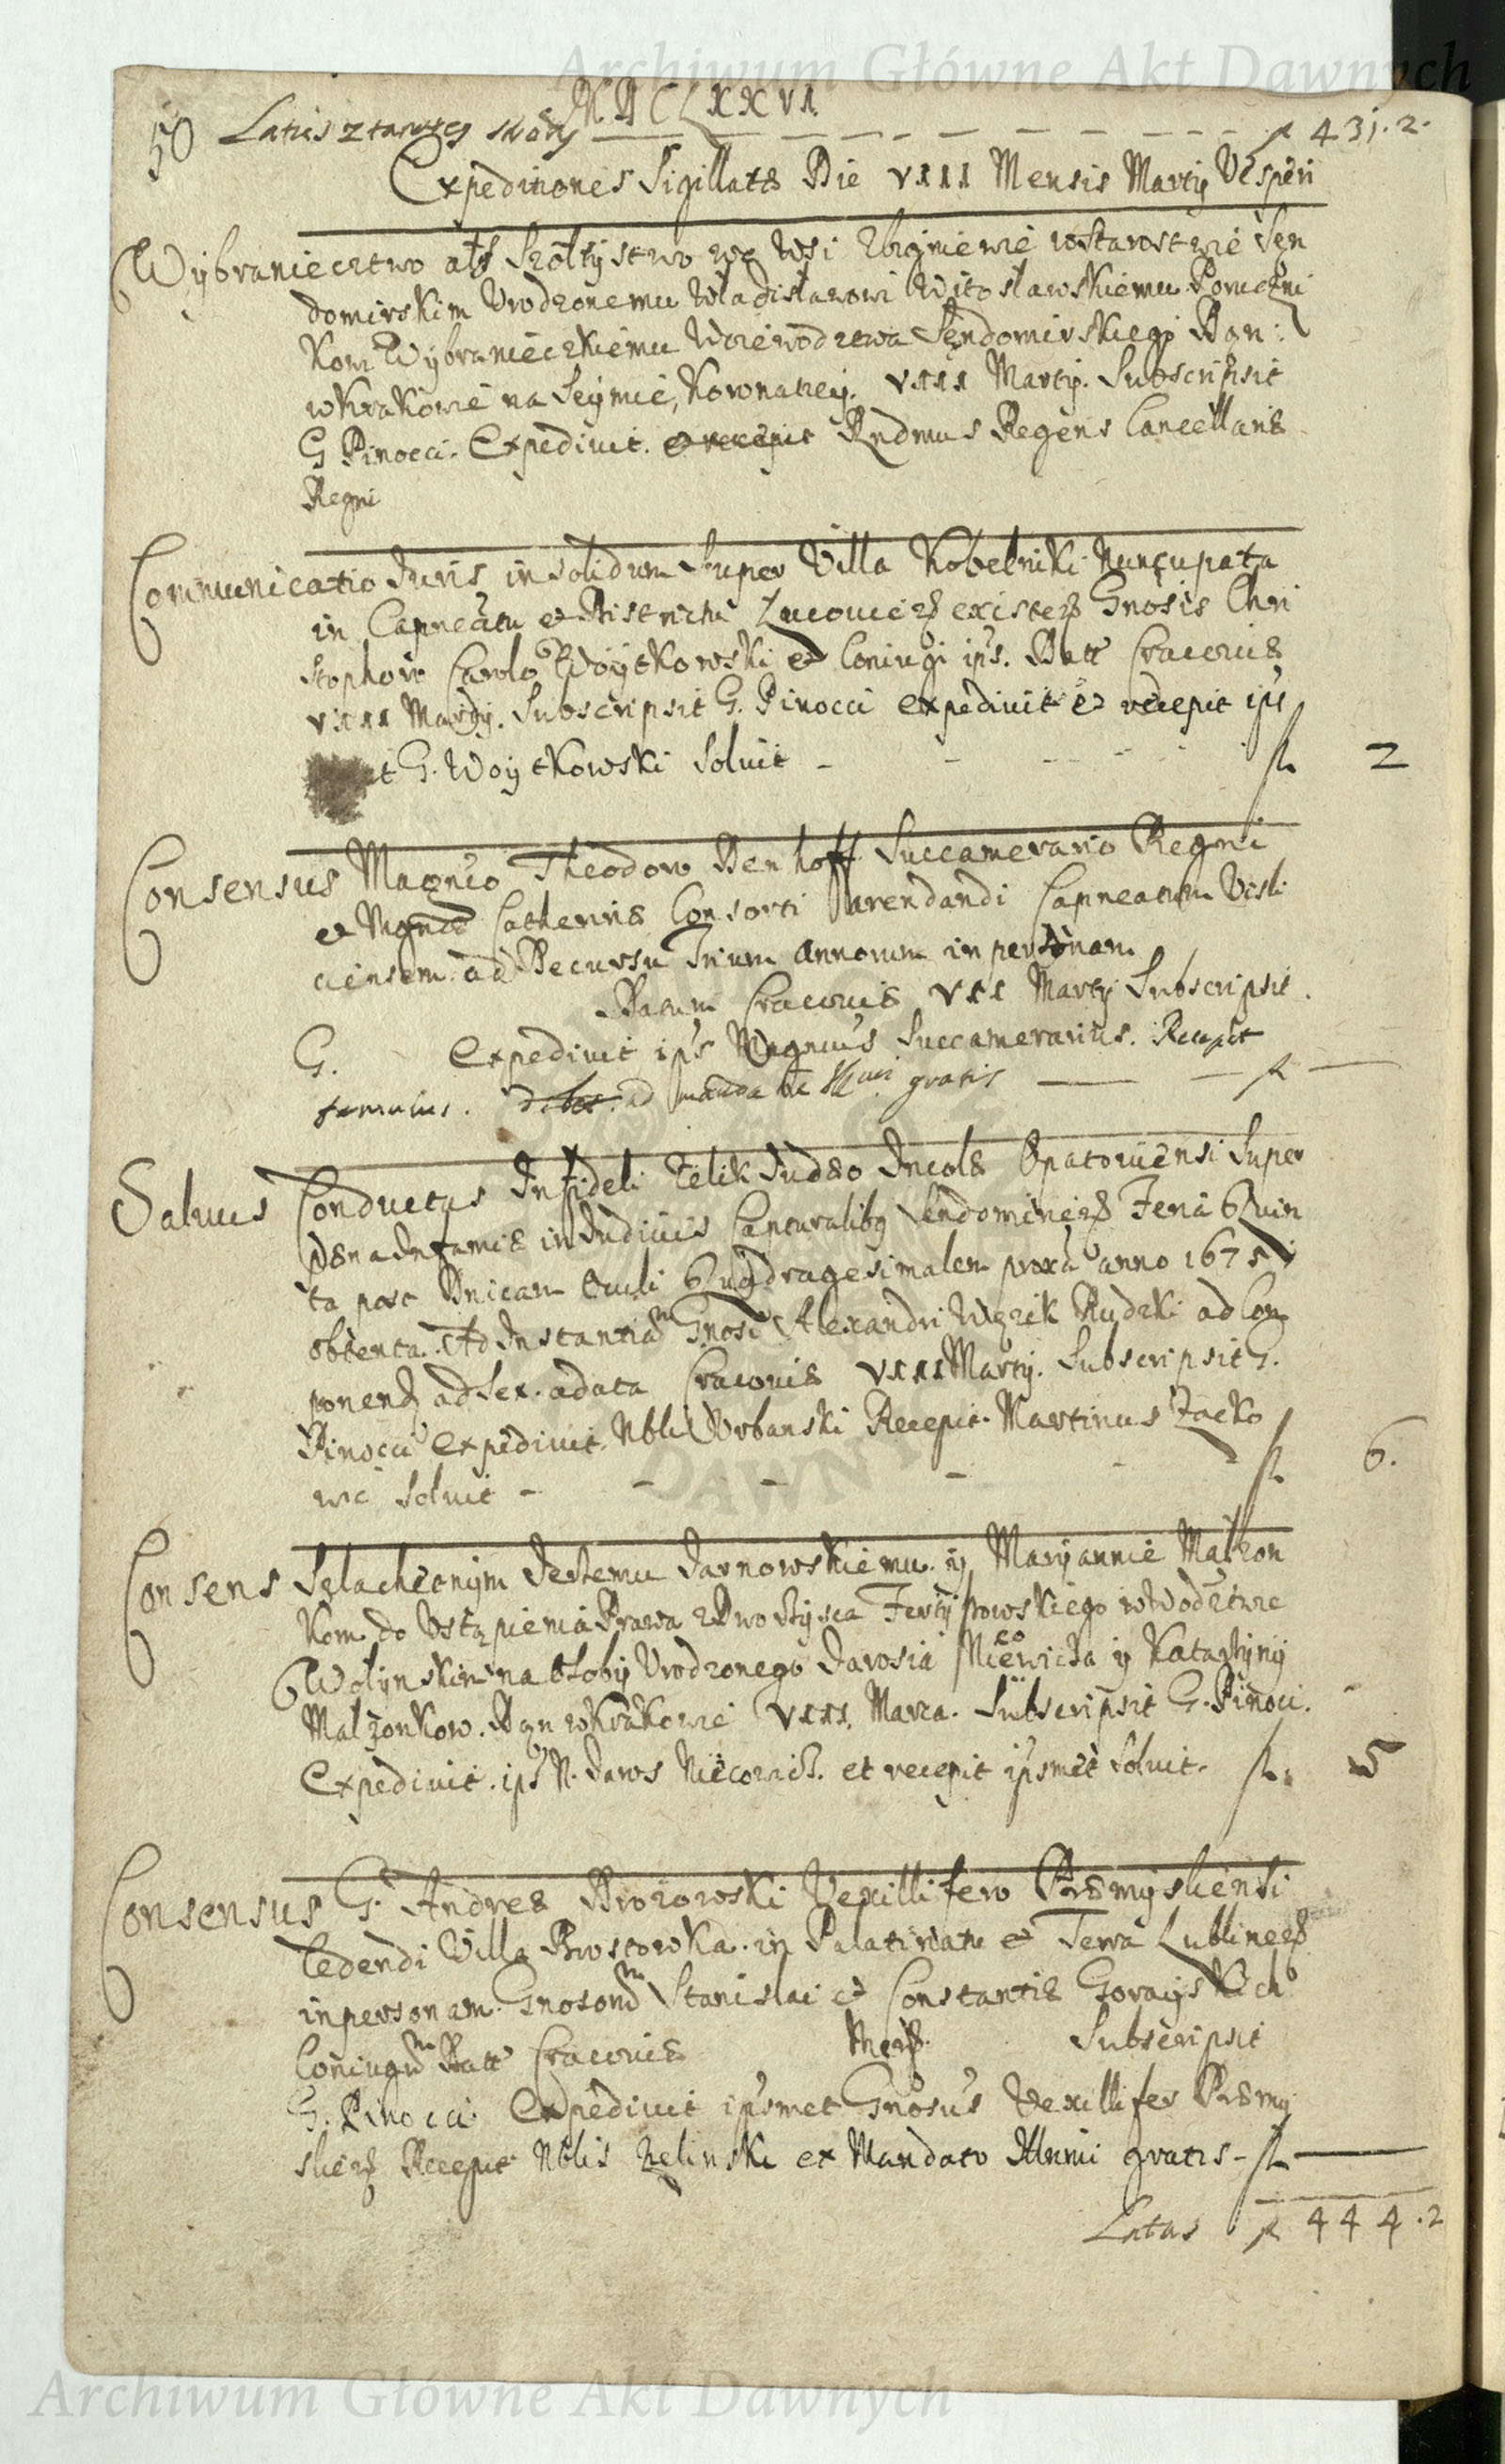 Archiwum Główne Akt Dawnych
M.DCLXXVI.
50 Latus z tamtey strony f 431.2.
Expeditiones Sigillatæ Die VIII Mensis Martij Vesperi
Wybraniectwo als Szołtystwo we Wsi Zbigniewie w Starostwie Sen
domirskim Vrodzonemu Władisławowi Witosławskiemu Poruczni
kowi Wybranieczkiemu Woiewodztwa Sendomirskiego Dan:
w Krakowie na Seymie, Koronatiey. VIII Martij. Subscripsit
G Pinocci. Expedivit. et recepit Rndmus Regens Cancellariæ
Regni
Communicatio Juris in solidum Super Villa Kobelniki Nuncupata
in Capneatu et Districtu existen Gnosis Chri
stophoro Carolo Woytkowski et Coniugi ips. Datt Cracoviæ
VIII Martij. Subscripsit G. Pinocci expedivit et recepit ips
t G. Woytkowski Soluit - - - fl 2
Consensus Magnco Theodoro Denhoff Succamerario Regni
et Mgncæ Catherinæ Consorti Arendandi Capneatum Visli
ciensem ad Decursu Trium Annorum in personam
Datum Cracoviæ VII Martij Subscripsit.
G. Expedivit ips Magncus Succamerarius. Recepit
famulus. debet ad gratis — fl —
Salvus Conductus Infideli Lelik Judæo Incolæ Opatoviensi Super
pæna Infamiæ in Judiciis Capturalibq Sendomirien Feria Quin
ta post Dnicam Oculi Quadragesimalem proxa anno 1675
obtenta. Ad Instantiam Gnosi Alexandri Wezik Rudzki ad Com
ponend ad Sex. a data Cracoviæ VIII Martij. Subscripsit G.
Pinocci Expedivit. Nblis Vrbanski Recepit. Martinus Zacko
wic Soluit - - - fl 6.
Consens Szlachetnym Jarnowskiemu. y Maryannie Małzon
kom do Vstąpienia Prawa z Dworzysca w Wodztwie
Wołynskim na Osoby Vrodzonego Jarosia y Katarzyny
Małzonkow. Dan w Krakowie VIII. Marca. Subscripsit G. Pinoci.
Expedivit. ips N. Jaros et recepit ipsmet Soluit. fl. 5
Consensus G. Andreæ Drozowski Vexillifero Præmysliensi
Cedendi Villa Brostowka. in Palatinatu et Terra Lublinen
in personam. Gnosorum Stanislai et Constantiæ Gorayskich
Coniugum Datt Cracoviæ Men. Subscripsit
G. Pinocci Expedivit ipsmet Gnosus Vexillifer Præmy
slien Recepit Nblis Zelinski ex Mandato Illmi gratis - fl —
Latus fl 444.2
Archiwum Główne Akt Dawnych